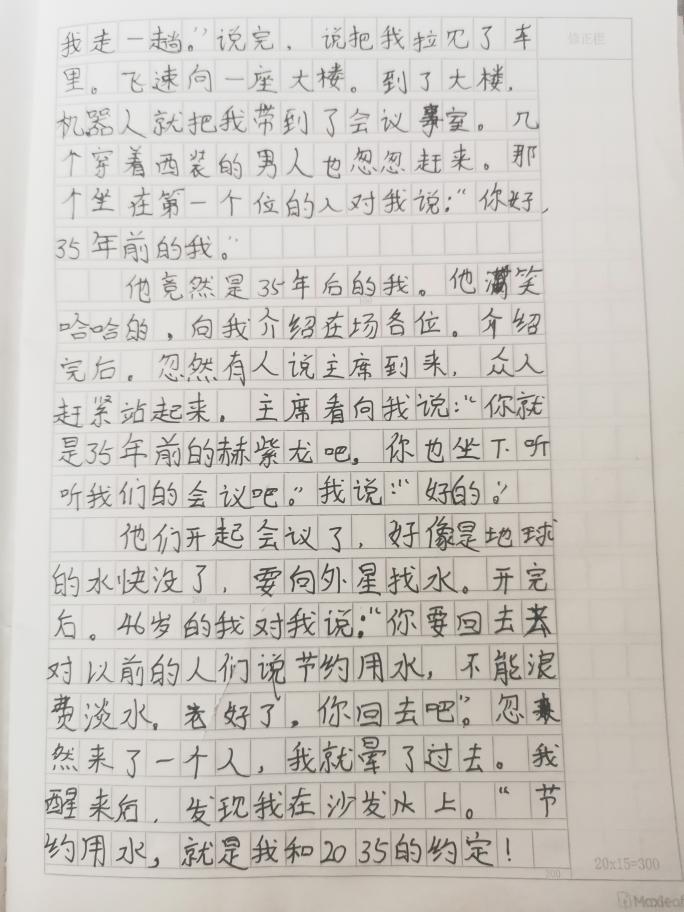 我走一趟。”说完，说把我拉冗了车
修正栏
里。飞速向一座大楼。到了大楼，
机器人就把我带到了会议室。几
个穿着西装的男人也忽忽赶来。那
个坐在第一个位的人对我说：“你好，
35年前的我。”
他竟然是35年后的我。他笑
哈哈的，向我介绍在场各位。介绍
完后。忽然有人说主席到来，众人
赶紧站起来。主席看向我说：“你就
是35年前的赫紫龙吧。你也坐下听
听我们的会议吧。”我说：“好的。”
他们开起会议了，好像是地球
的水快没了，要向外星找水。开完
后。46岁的我对我说：“你要回去
对以前的人们说节约用水，不能浪
费淡水。好了，你回去吧”。忽
然来了一个人，我就晕了过去。我
醒来后，发现我在沙发上。“节
约用水，就是我和2035的约定！
200
20x15=300
Maxleaf